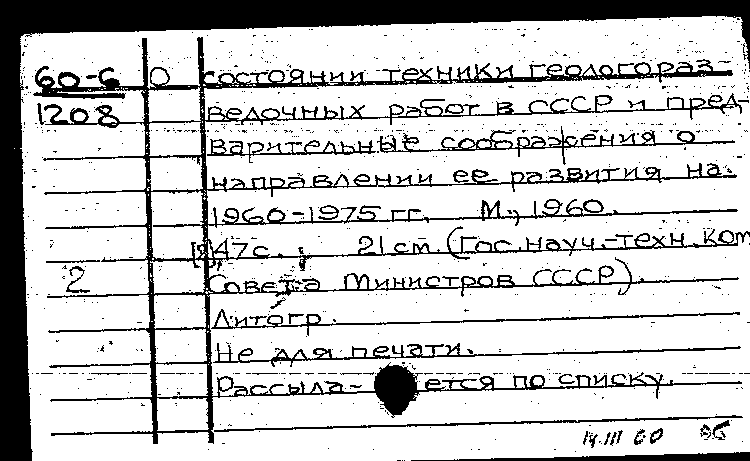 60-6 О состоянии техники геологораз-
1208 ведочных работ в СССР и пред-
варительные соображения о
направлении ее развития на
1960-1975 гг. М., 1960.
47с. 21 см. (Гос. науч.-техн. ком
2 Совета Министров СССР).
Литогр.
Не для печати.
Рассыла- ется по списку.
14.III 60